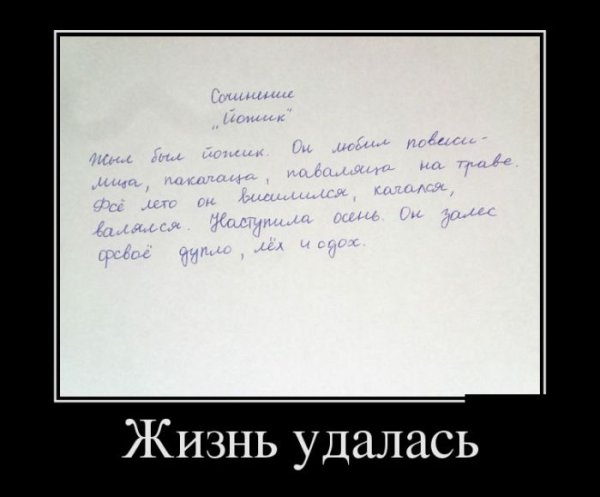 Сочинение
„Йожик"
Жыл был йожик. Он любил повиси-
лица, пакачаца, паваляца на траве.
Фсё лето он висилился, качался,
валялся. Наступила осень. Он залес
фсваё дупло, лёх и одох.
Жизнь удалась